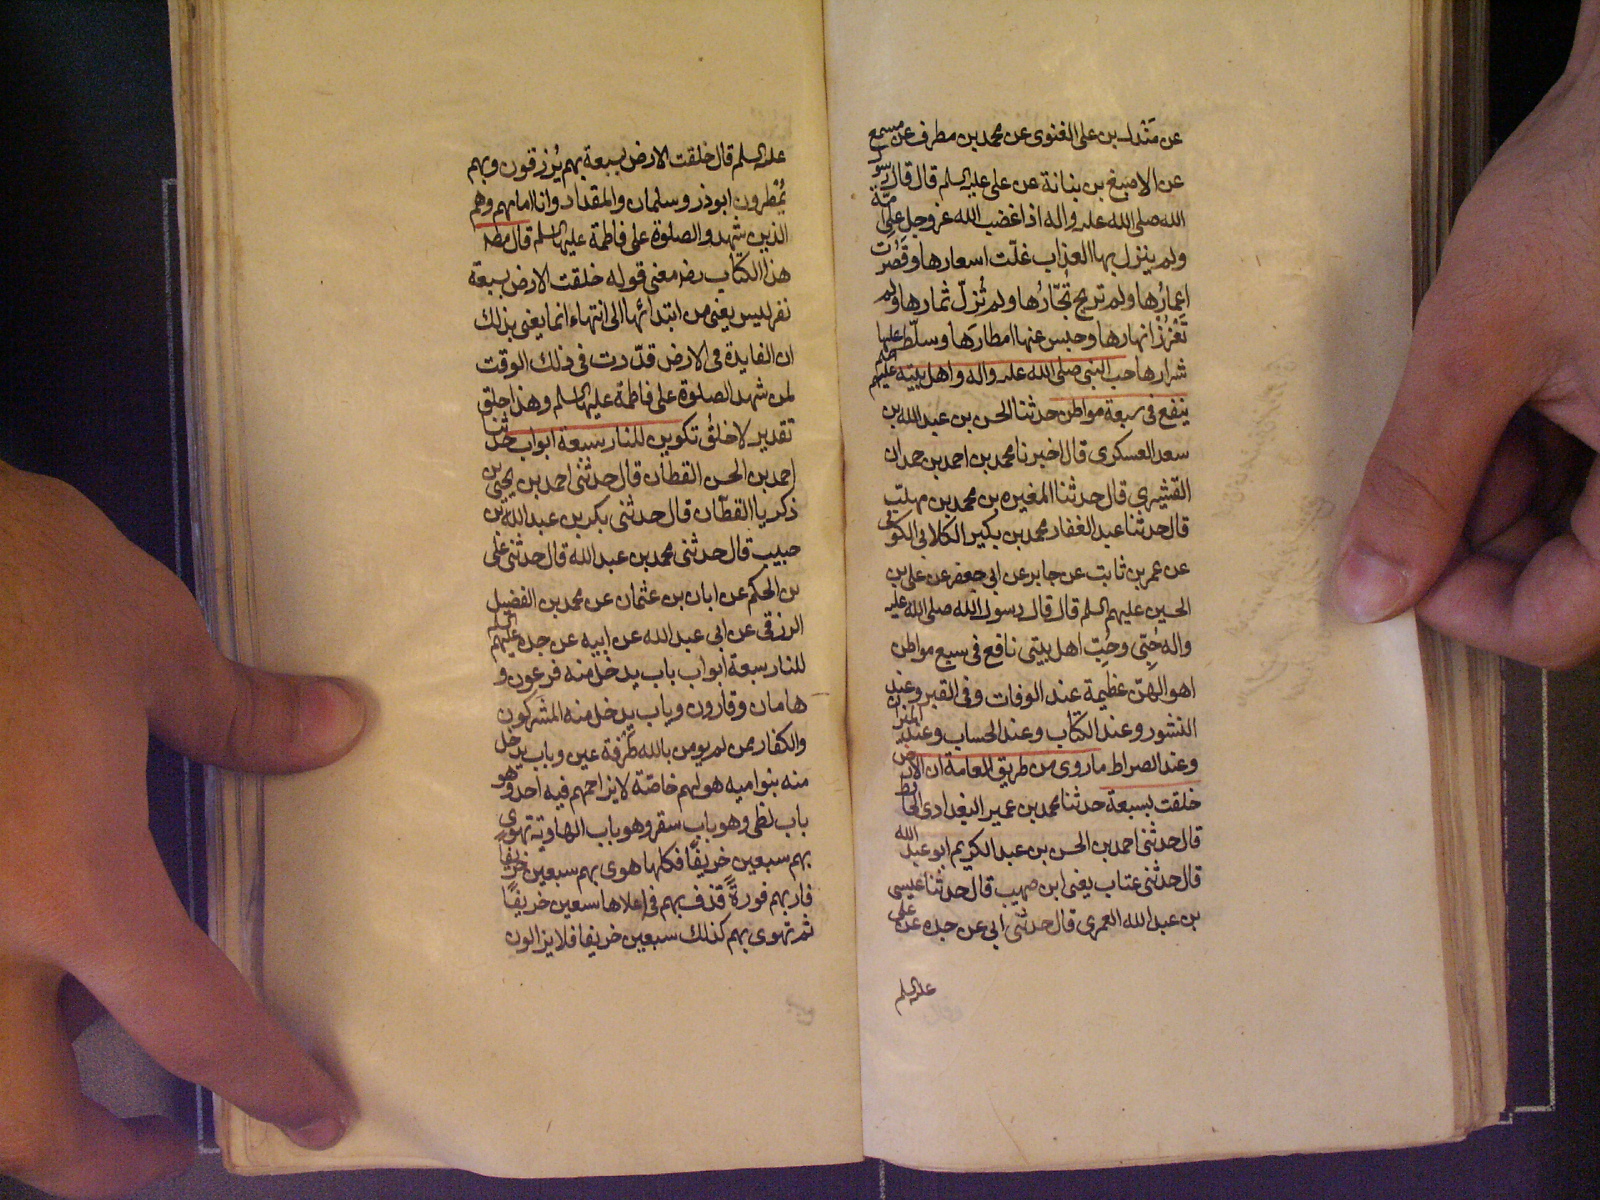 عن مَنْدل بن على الغنوى عن محمد بن مطرف عن مسمع
عن الاصبغ بن بنانة عن على عليه السلم قال قال رسول
الله صلى الله عليه واله اذا غضب الله عز وجل على امّة
ولم ينزل بها العذاب غلّت اسعارها وقَصُرت
اعمارُها ولم تربح تجّارُها ولم تُزلّ ثمارها ولم
تَغْزُرْ انهارها وحبس عنها امطارَها وسلّط عليها
شرارها حب النبى صلى الله عليه واله واهل بيته عليهم السلم
ينفع فى سبعة مواطن حدثنا الحسن بن عبد الله بن
سعد العسكرى قال اخبرنا محمد بن احمد بن حمدان
القشيرى قال حدثنا المغيره بن محمد بن مهلب
قال حدثنا عبد الغفار محمد بن بكير الكلابى الكوفى
عن عمر بن ثابت عن جابر عن ابى جعفر عن على بن
الحسين عليهم السلم قال قال رسول الله صلى الله عليه
واله حُبّى وحُبّ اهل بيتى نافع فى سبع مواطن
اهوالهنّ عظيمة عند الوفات وفى القبر وعند
النشور وعند الكتاب وعند الحساب وعند الميزان
وعند الصراط ماروى من طريق العامة ان الارض
خلقت بسبعة حدثنا محمد بن عمير البغدادى الحافظ
قال حدثنى احمد بن الحسن بن عبد الكريم ابو عبد الله
قال حدثنى عتاب يعنى ابن صهيب قال حدثنا عيسى
بن عبد الله العمرى قال حدثنى ابى عن جده عن على
عليه السلم
عليه السلم قال خلقت الارض بسبعة بهم يُرزقون وبهم
يُمْطرون ابوذر وسلمان والمقداد وانا امامهم وهم
الذين شهدوا الصلوة على فاطمة عليها السلم قال مصنف
هذا الكتاب رضه معنى قوله خلقت الارض بسبعة
نفر ليس يعنى من ابتدائها الى انتهاء انما يعنى بذلك
ان الفايدة فى الارض قدّرت فى ذلك الوقت
لمن شهد الصلوة على فاطمة عليها السلم وهذا خلق
تقدير لا خلق تكوين للنار سبعة ابواب حدثنا
احمد بن الحسن القطان قال حدثنى احمد بن يحيى بن
زكريا القطّان قال حدثنى بكر بن عبد الله بن
حبيب قال حدثنى محمد بن عبد الله قال حدثنى على
بن الحكم عن ابان بن عثمان عن محمد بن الفضيل
الرزقى عن ابى عبد الله عن ابيه عن جده عليهم السلم
للنار سبعة ابواب باب يدخل منه فرعون و
هامان وقارون وباب يدخل منه المشركون
والكفار ممن لم يومن بالله طرْفة عين وباب يدخل
منه بنو اميه هو لهم خاصّة لا يزاحمهم فيه احد وهو
باب لظى وهو باب سقر وهو باب الهاوية تهوى
بهم سبعين خريفًا فكلها هوى بهم سبعين خريفا
فار بهم فورةً قذف بهم فى اعلاها سبعين خريفًا
ثم تهوى بهم كذلك سبعين خريفا فلا يزالون